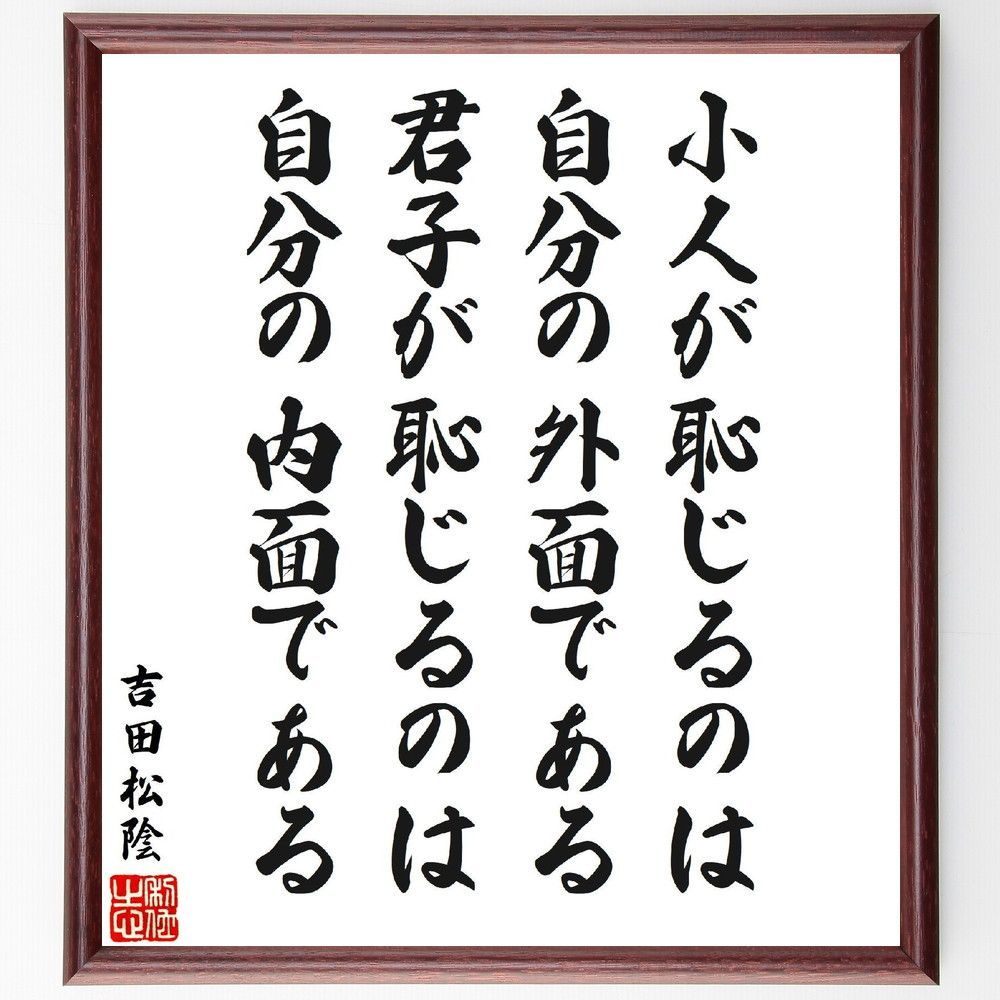 小人が恥じるのは
自分の外面である
君子が恥じるのは
自分の内面である
吉田松陰